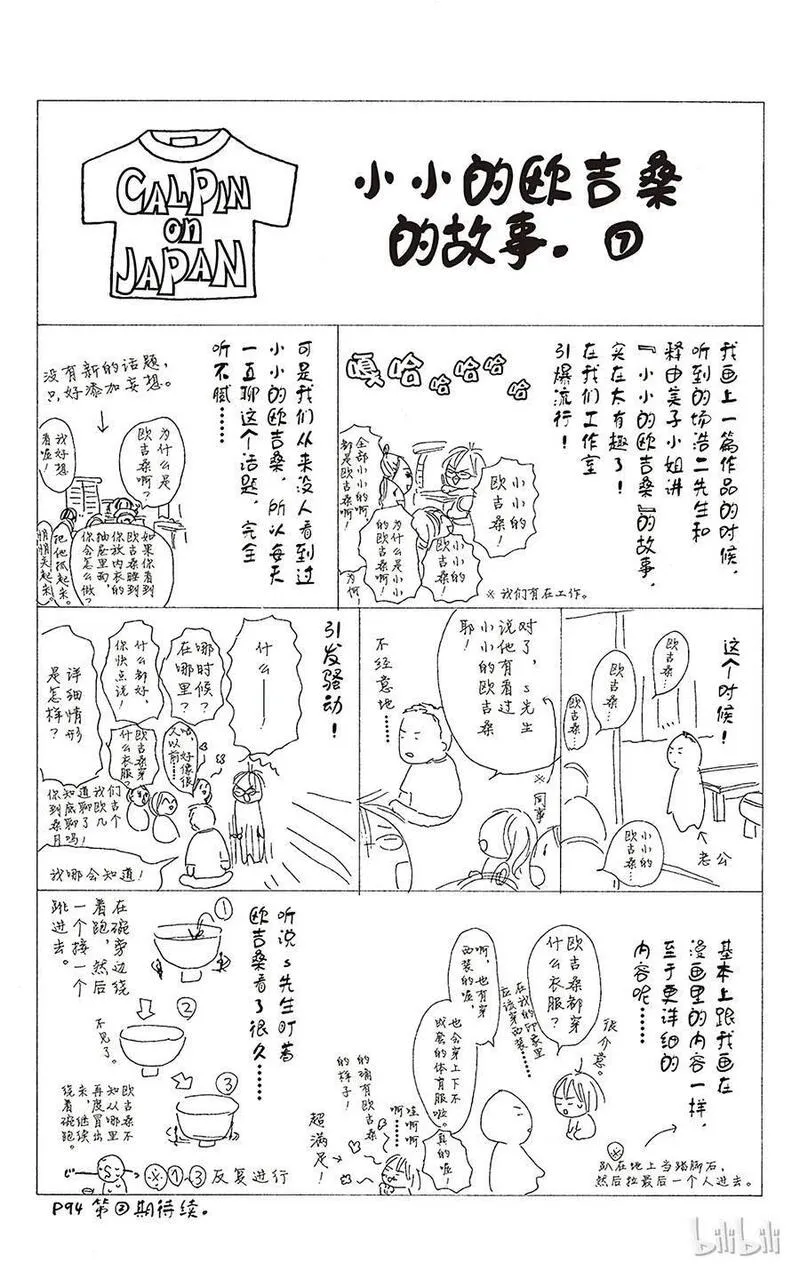 CALPIN
on
JAPAN
小小的欧吉桑
的故事。⑦
我画上一篇作品的时候，
听到的场浩二先生和
释由美子小姐讲
『小小的欧吉桑』的故事，
实在太有趣了！
在我们工作室
引爆流行！
嘎哈哈哈哈哈
小小的
欧吉桑！
全部小小的啊
都是欧吉桑啊！
小小的
欧吉桑！
为什么是小小
的欧吉桑啊！
为何！
※我们有在工作。
可是我们从来没人看到过
小小的欧吉桑，所以每天
一直聊这个话题，完全
听不腻……
没有新的话题，
只好添加妄想。
为什么是
欧吉桑啊？
我好想
看喔！
如果你看到
欧吉桑睡到
你放内衣的
抽屉里面，
你会怎么做？
把他抓起来。
悄悄关起来。
这个时候！
欧吉桑…
欧吉桑…
欧吉桑…
小小的
欧吉桑…
老公
对了，S先生
说他有看过
小小的欧吉桑
耶！
※同事
不经意地…
引发骚动！
什么——
哪时候？
在哪里？
什么都好，
你快点说！
详细情形
是怎样？
欧吉桑穿
什么衣服？
咕 好像很
久以前……
你知道我们
到底聊了欧吉
桑聊了几个
月吗！
我哪会知道！
基本上跟我画在
漫画里的内容一样，
至于更详细的
内容呢……
※
趴在地上当踏脚石，
然后拉最后一个人进去。
很介意。
欧吉桑都穿
什么衣服？
在我的印象里
应该穿西装……
啊，也有穿
西装的喔，
也会穿上下不
成套的体育服啦。
真的喔！
哇啊啊……
的确有欧吉桑
的样子！
超满足！
听说S先生盯着
欧吉桑看了很久……
①
在碗旁边绕
着跑，然后
一个接一个
跳进去。
②
不见了。
③
欧吉桑不
知从哪里
再度冒出
来，继续
绕着碗跑。
S
※①.③反复进行
P94 第②期待续。
bilibili